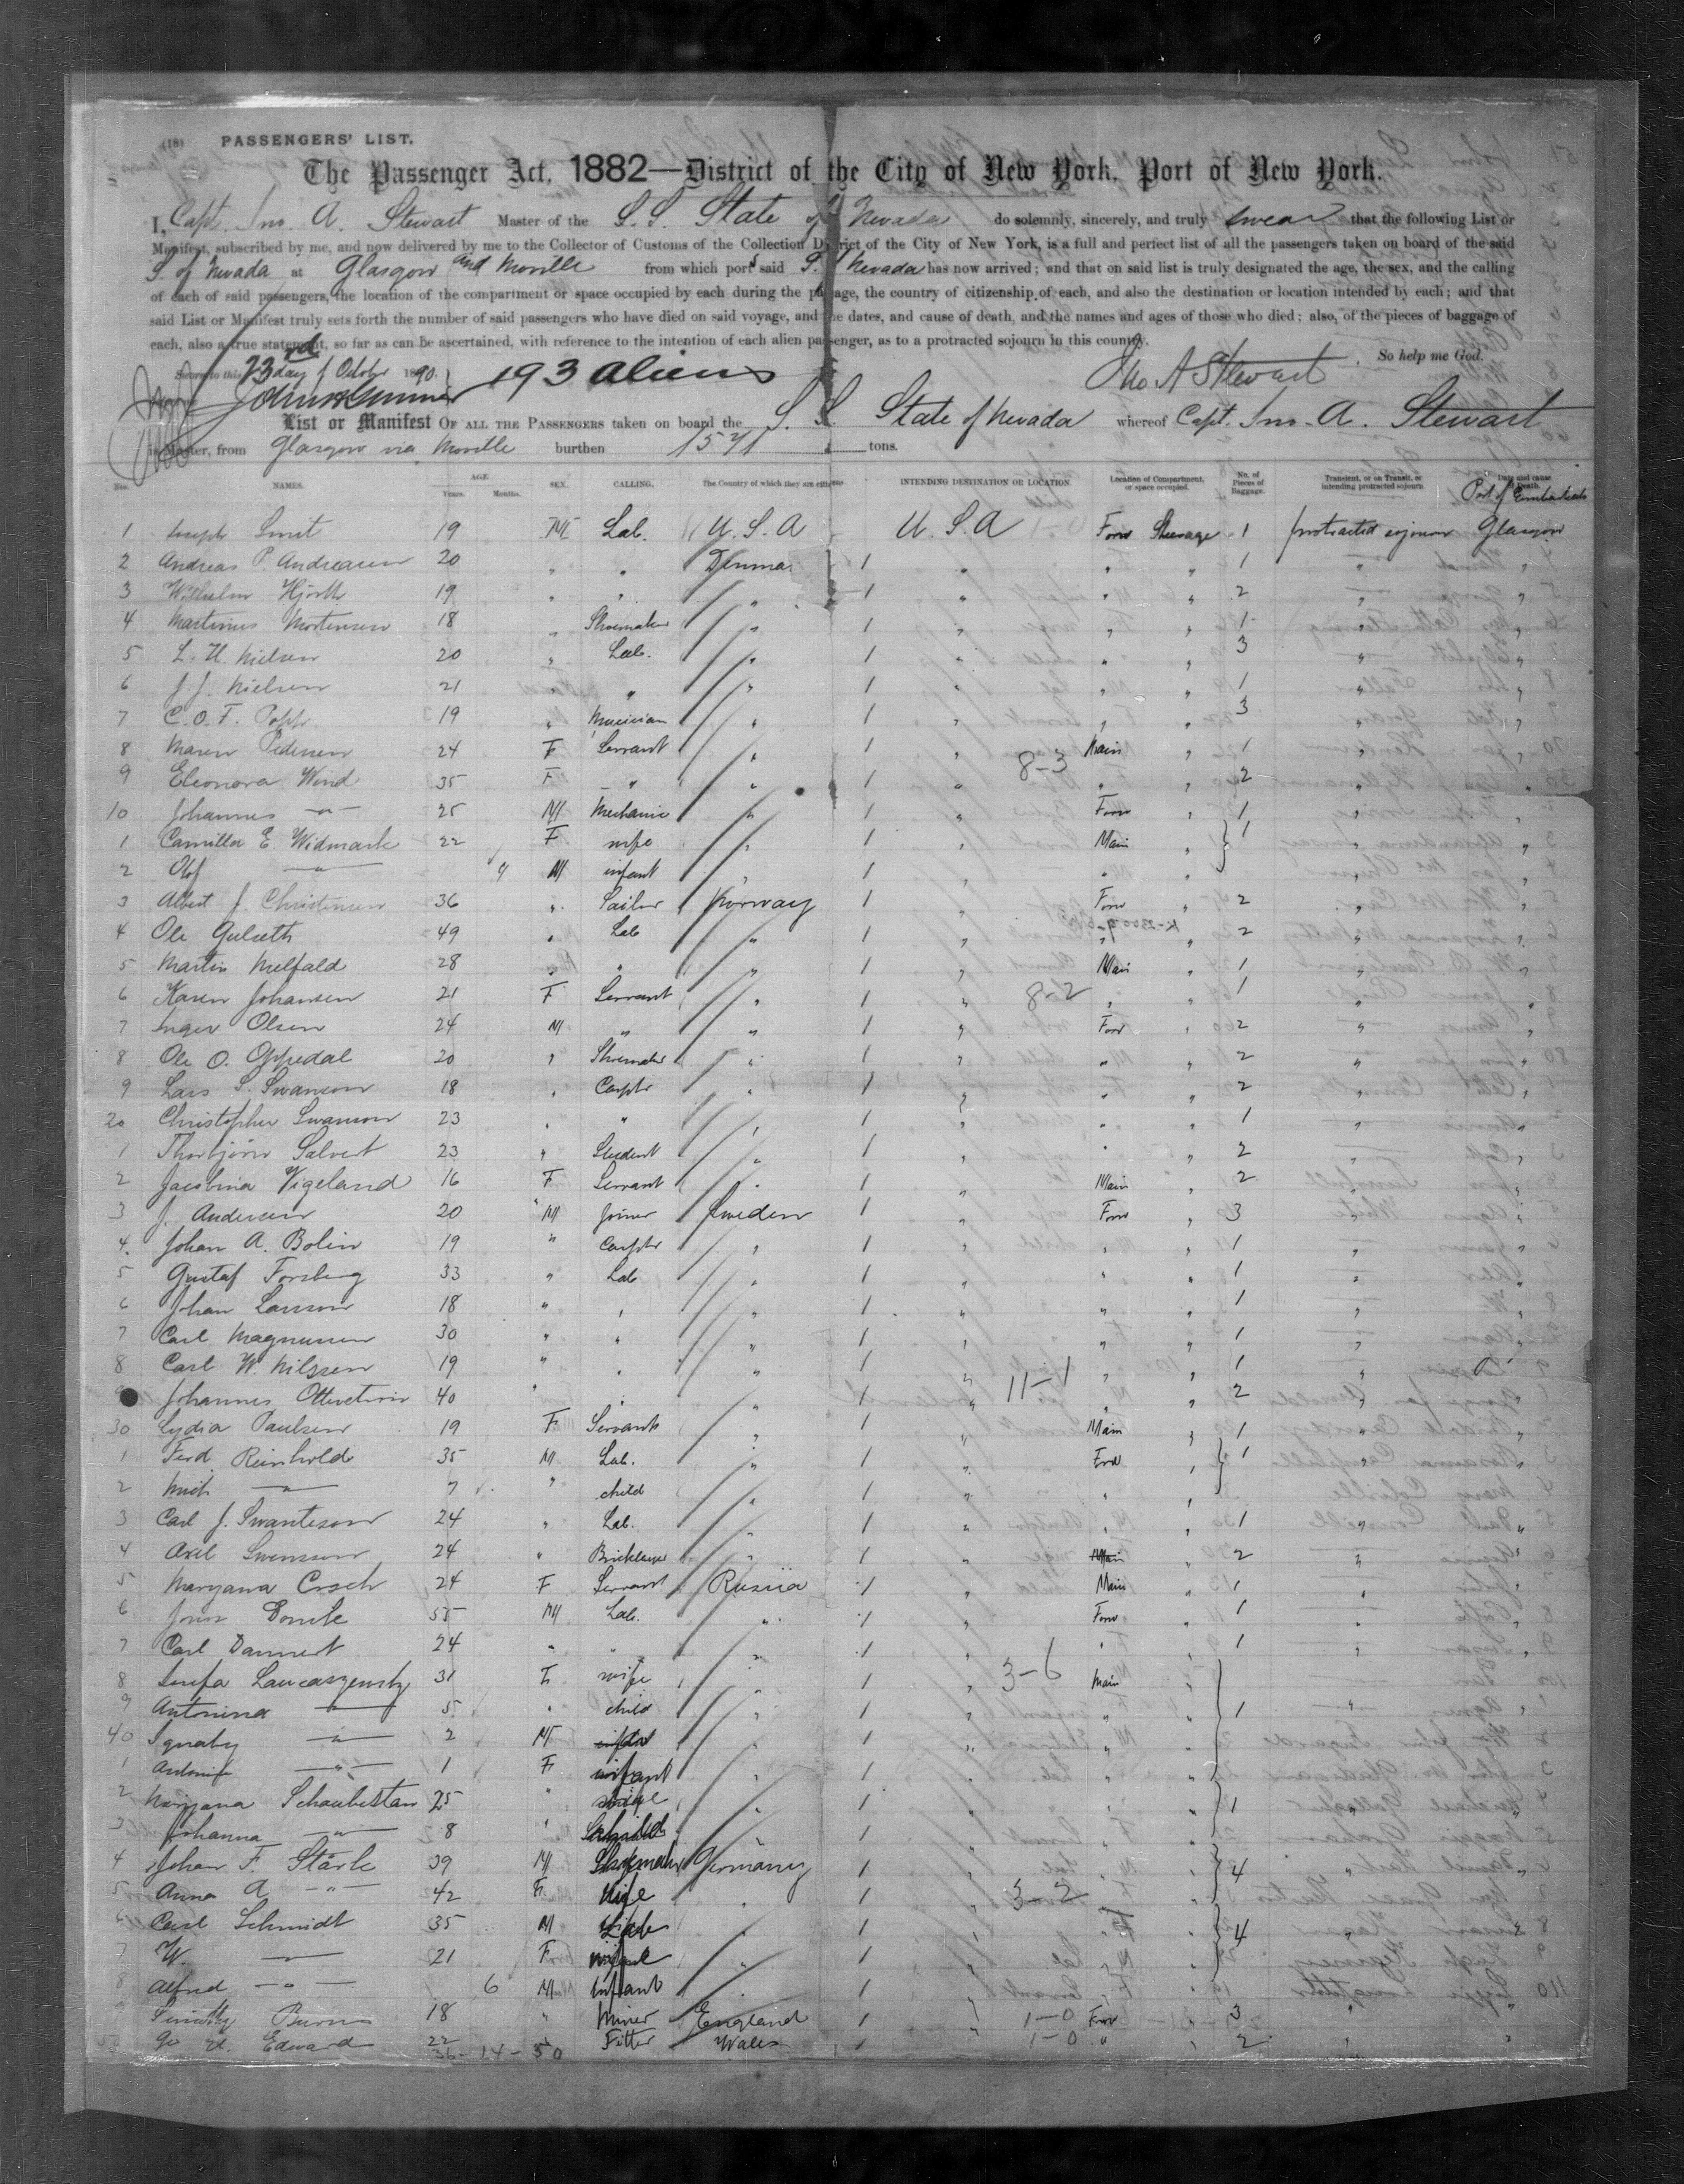 (18) PASSENGERS' LIST.
The Passenger Act, 1882—District of the City of New York, Port of New York.
I, Capt. Jno. A. Stewart Master of the S.S. State of Nevada do solemnly, sincerely, and truly swear that the following List or
Manifest, subscribed by me, and now delivered by me to the Collector of Customs of the Collection District of the City of New York, is a full and perfect list of all the passengers taken on board of the said
S of Nevada at Glasgow and Moville from which ports said S. of Nevada has now arrived; and that on said list is truly designated the age, the sex, and the calling
of each of said passengers, the location of the compartment or space occupied by each during the passage, the country of citizenship of each, and also the destination or location intended by each; and that
said List or Manifest truly sets forth the number of said passengers who have died on said voyage, and the dates, and cause of death, and the names and ages of those who died; also, of the pieces of baggage of
each, also a true statement, so far as can be ascertained, with reference to the intention of each alien passenger, as to a protracted sojourn in this country.
So help me God.
Sworn to this 23rd day of October 1890. 193 aliens Jno A Stewart
List or Manifest OF ALL THE PASSENGERS taken on board the S.S. State of Nevada whereof Capt. Jno. A. Stewart
is Master, from Glasgow via Moville burthen tons.
Nos. NAMES. AGE Years. Months. SEX. CALLING. The Country of which they are citizens INTENDING DESTINATION OR LOCATION Location of Compartment, or space occupied. No. of Pieces of Baggage. Transient, or on Transit, or intending protracted sojourn. Date and cause of Death. Port of Embarkation
1 Joseph Smit 19 M Lab. U.S.A U.S.A Forw Steerage 1 protracted sojourn Glasgow
2 Andreas P. Andreasen 20 " " Denma 1 " " " 1 "
3 Wilhelm Hjorth 19 " " " 1 " " " 2 "
4 Martinus Mortensen 18 " Shoemaker " 1 " " " 1 "
5 L. H. Nielsen 20 " Lab. " 1 " " " 3 "
6 J. J. Nielsen 21 " " " 1 " " " 1 "
7 C. O. F. Popp 19 " Musician " 1 " " " 3 "
8 Maren Pedersen 24 F Servant " 1 " Main " 1 "
8-3
9 Eleonora Wind 35 F " " 1 " " " 2 "
10 Johannes — " — 25 M Mechanic " 1 " Forw " 1 "
1 Camilla E. Widmark 22 F wife " 1 " Main " 1 "
2 Olof — " — 9 M infant " 1 " " " "
3 Albert J. Christensen 36 " Sailor Norway 1 " Forw " 2 "
4 Ole Gulseth 49 " Lab " 1 " " " 2 "
5 Martin Melfald 28 " " " 1 " Main " 1 "
6 Karen Johansen 21 F Servant " 1 " 8-2 " " 1 "
7 Inger Olsen 24 M " " 1 " Forw " 2 "
8 Ole O. Oppedal 20 " Shoemaker " 1 " " " 2 "
9 Lars S. Swanson 18 " Carptr " 1 " " " 2 "
20 Christopher Swanson 23 " " " 1 " " " 1 "
1 Thorbjörn Salvert 23 " Student " 1 " " " 2 "
2 Jacobina Vigeland 16 F Servant " 1 " Main " 2 "
3 J. Andersen 20 M Joiner Sweden 1 " Forw " 3 "
4 Johan A. Bolin 19 " Carptr " 1 " " " 1 "
5 Gustaf Forsberg 33 " Lab " 1 " " " 1 "
6 Johan Larsson 18 " " " 1 " " " 1 "
7 Carl Magnussen 30 " " " 1 " " " 1 "
8 Carl W. Nilssen 19 " " " 1 " " " 1 "
11-1
9 Johannes 40 " " " 1 " " " 2 "
30 Lydia Paulsen 19 F Servant " 1 " Main " 1 "
1 Ferd Reinhold 35 M Lab. " 1 " Ford " 1 "
2 — " — 7 " child " 1 " " " "
3 Carl J. Swanteson 24 " Lab. " 1 " " " 1 "
4 Axel Swensson 24 " Bricklayer " 1 " Main " 2 "
5 Maryana Crsch 24 F Servant Russia 1 " Main " 1 "
6 55 M Lab. " 1 " Forw " 1 "
7 Carl Dannert 24 " " " 1 " " " 1 "
8 31 F wife " 1 " 3-6 Main "
9 Antonina — " — 5 " child " 1 " " " 1 "
40 — " — 2 M " 1 " " "
1 — " — 1 F infant " 1 " " "
2 Maryana Schaubistan 25 " " 1 " " " 1
3 Johanna — " — 8 " child " 1 " " "
4 Johan F. Stärk 39 M Germany 1 " " " 4
5 Anna A. — " — 42 F Wife " 1 " 3-2
6 Carl Schmidt 35 M Lab " 1 " " 4
7 W. — " — 21 F wife " 1 " "
8 Alfred — " — 6 M Infant " 1 " "
9 Timothy Burns 18 " Miner England 1 " 1-0 Forw " 3 "
Edward 22 Fitter Wales 1 1-0 " " 2 "
36-14-50